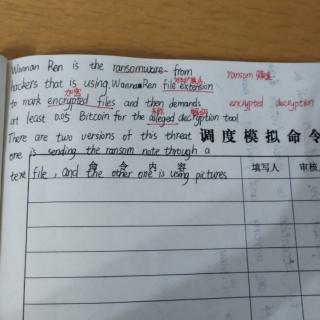 Wannan Ren is the ransomware from ransom 赎金
hackers that is using WannanRen file extension
加密
to mark encrypted files and then demands encrypted decryption
at least 0.05 Bitcoin for the alleged decryption tool
There are two versions of this threat 调度模拟命令
one is sending the ransom note through a
命令内容 填写人 审核
text file, and the other one is using pictures